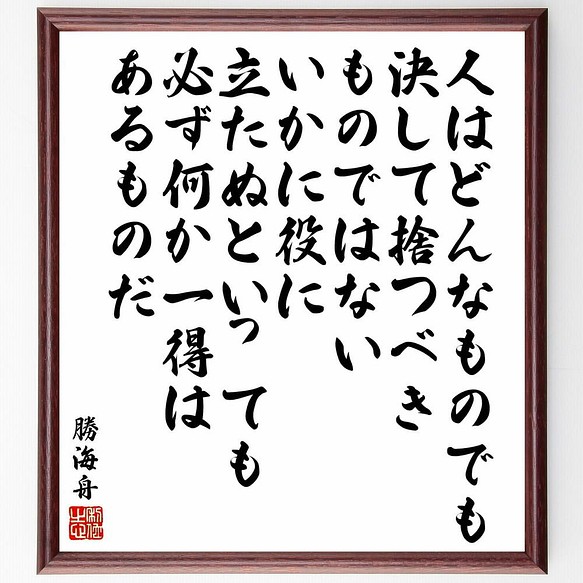 人はどんなものでも
決して捨つべき
ものではない
いかに役に
立たぬといっても
必ず何か一得は
あるものだ
勝海舟